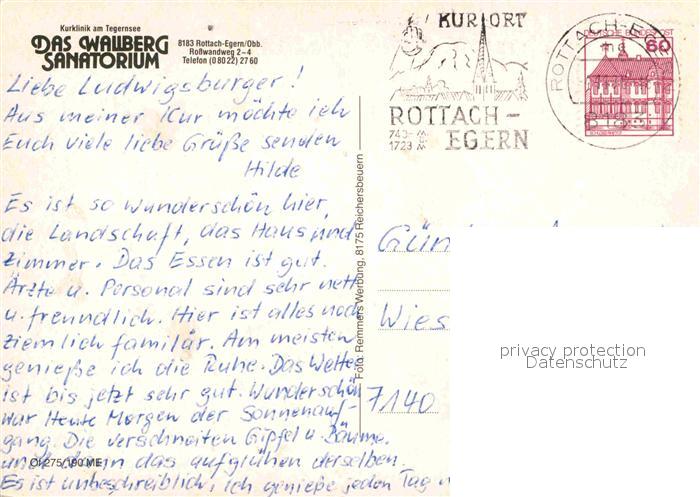 Kurklinik am Tegernsee
DAS WALLBERG
SANATORIUM
8183 Rottach-Egern/Obb.
Roßwandweg 2–4
Telefon (0 80 22) 27 60
Liebe Ludwigsburger!
Aus meiner Kur möchte ich
Euch viele liebe Grüße senden
Hilde
Es ist so wunderschön hier,
die Landschaft, das Haus und
Zimmer. Das Essen ist gut.
Ärzte u. Personal sind sehr nett
u. freundlich. Hier ist alles noch
ziemlich familär. Am meisten
genieße ich die Ruhe. Das Wetter
ist bis jetzt sehr gut. Wunderschön
war Heute Morgen der Sonnenauf-
gang. Die verschneiten Gipfel u. Bäume.
und dann das aufglühen derselben.
Es ist unbeschreiblich, ich genieße jeden Tag
OI 275/190 ME
Foto: Remmers Werbung, 8175 Reichersbeuern
KURORT
ROTTACH-
EGERN
ROTTACH-E
DEUTSCHE BUNDESPOST
60
Wies
7140
privacy protection
Datenschutz